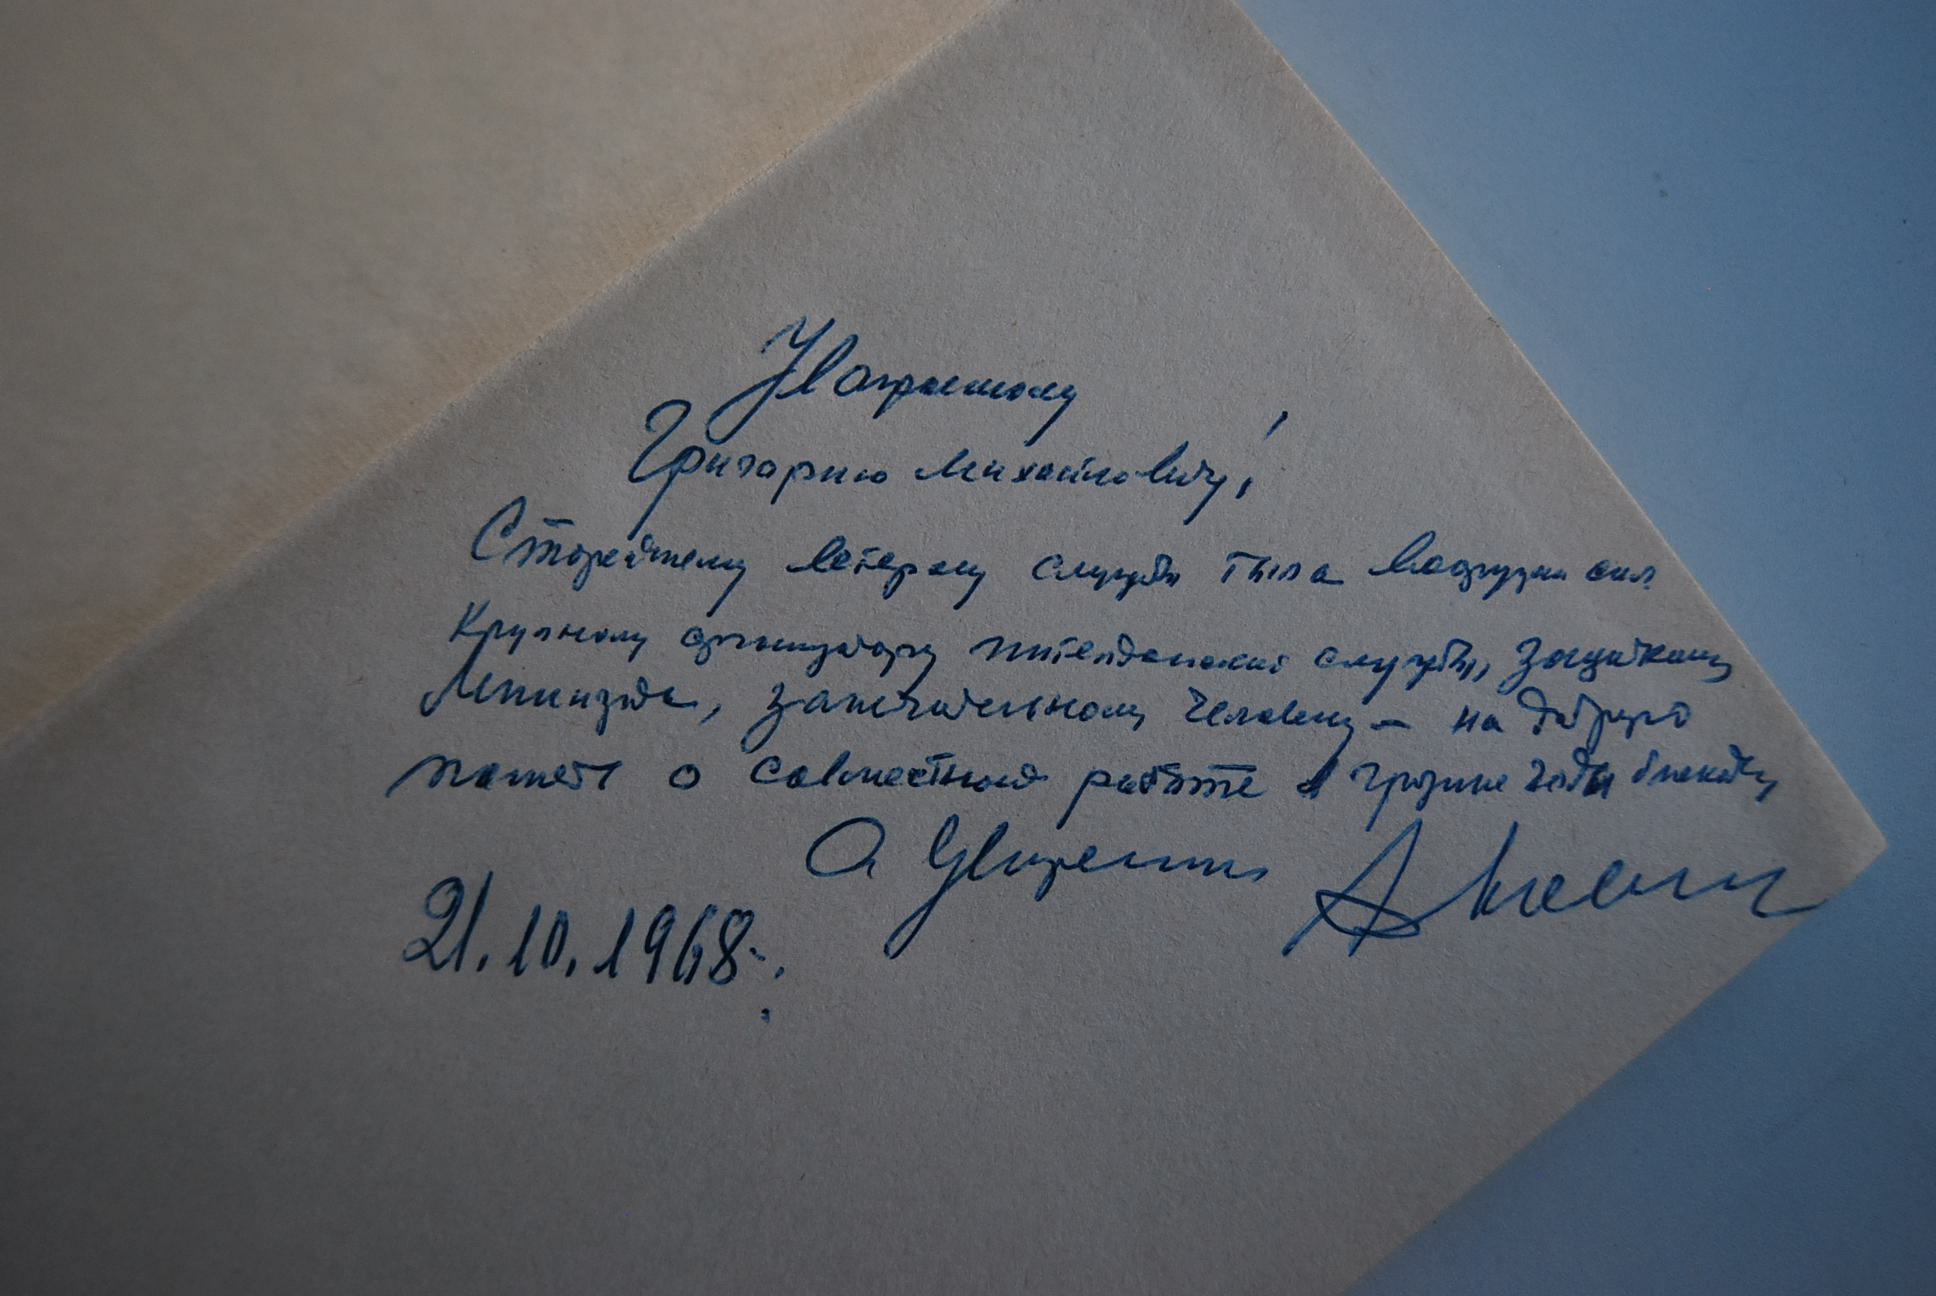 Уважаемому
Григорию Михайловичу!
Старейшему ветерану службы тыла Вооружен сил
Крупному организатору интендантской службы, защитнику
Ленинграда, замечательному человеку – на добрую
память о совместной работе в грозные годы блокады
С уважением
21.10.1968г.